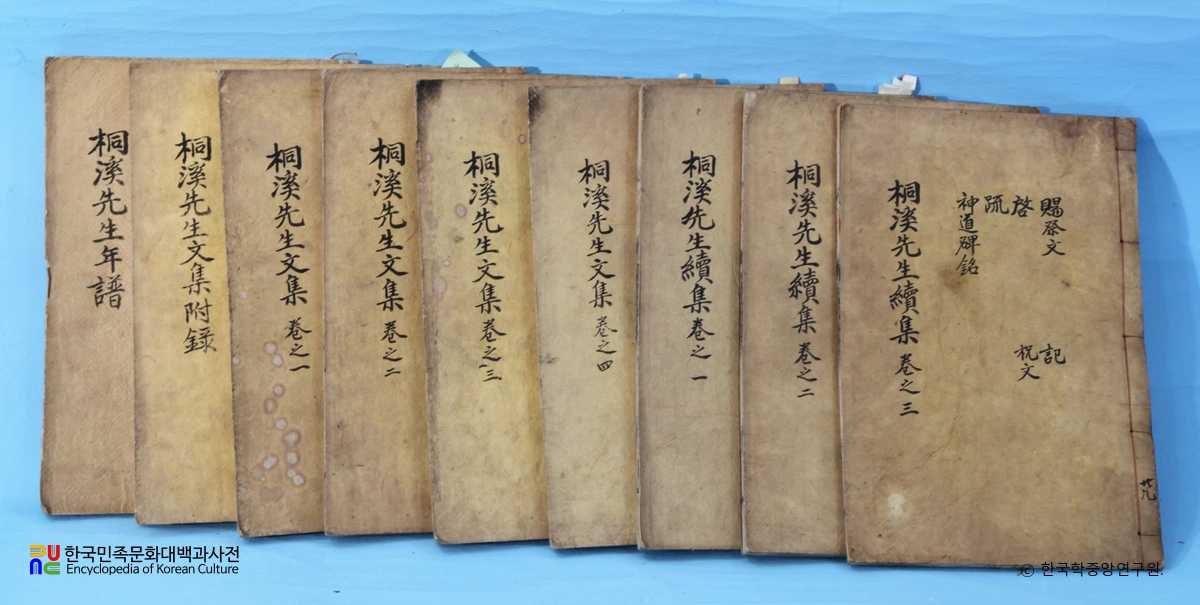 桐溪先生年譜
桐溪先生文集附錄
桐溪先生文集 卷之一
桐溪先生文集 卷之二
桐溪先生文集 卷之三
桐溪先生文集 卷之四
桐溪先生續集 卷之一
桐溪先生續集 卷之二
桐溪先生續集 卷之三
賜祭文 記
啓 祝文
疏
神道碑銘
한국민족문화대백과사전
Encyclopedia of Korean Culture
© 한국학중앙연구원.